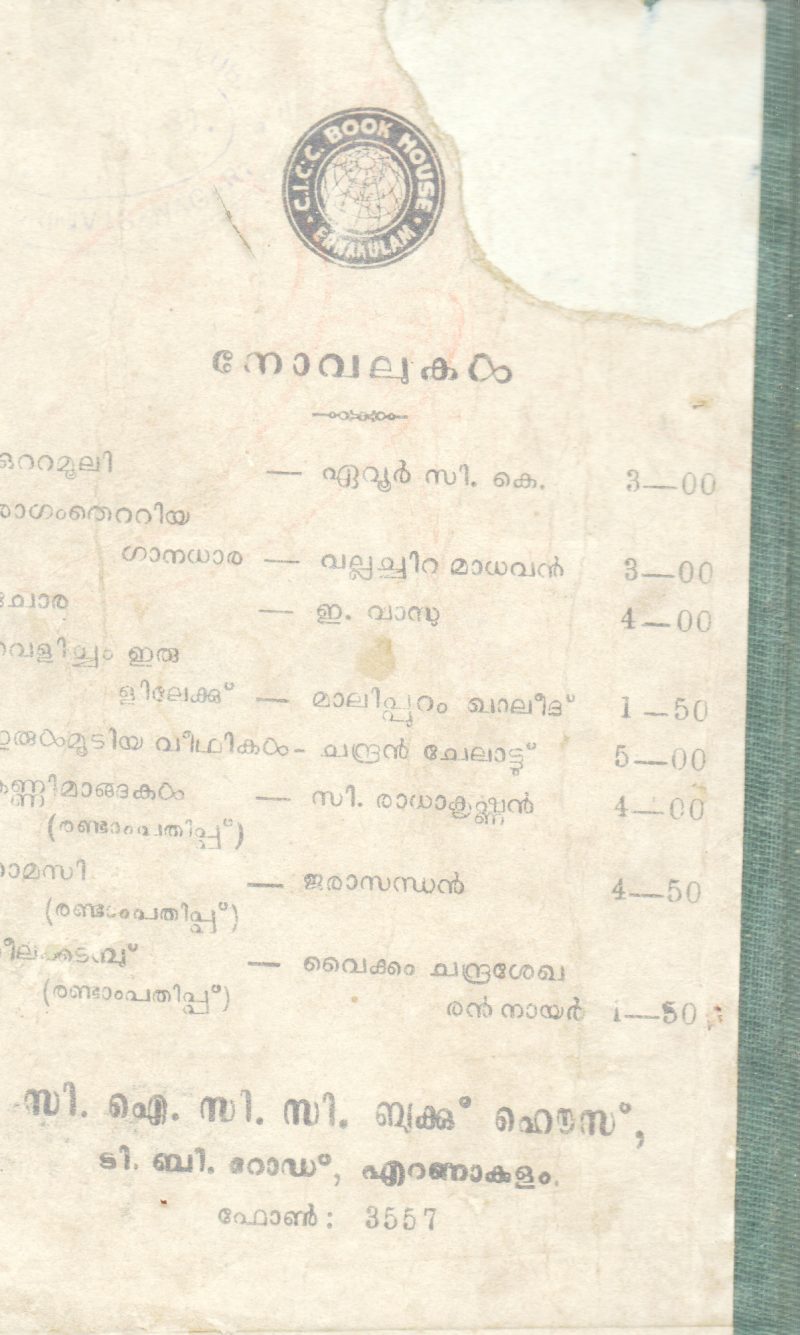 C.I.C.C. BOOK HOUSE
ERNAKULAM
നോവലുകൾ
ഒററമൂലി — ഏവൂർ സി. കെ. 3—00
രാഗംതെററിയ
ഗാനധാര — വല്ലച്ചിറ മാധവൻ 3—00
ചോര — ഇ. വാസു 4—00
വെളിച്ചം ഇരു
ളിലേക്കു് — മാലിപ്പുറം ഖാലീദ് 1—50
ഇരുൾമൂടിയ വീഥികൾ- ചന്ദ്രൻ ചേലാട്ടു് 5—00
കണ്ണിമാങ്ങകൾ — സി. രാധാകൃഷ്ണൻ 4—00
(രണ്ടാംപതിപ്പ്)
താമസി — ജരാസന്ധൻ 4—50
(രണ്ടാംപതിപ്പ്)
— വൈക്കം ചന്ദ്രശേഖ
(രണ്ടാംപതിപ്പ്) രൻ നായർ 1—50
സി. ഐ. സി. സി. ബുക്കു് ഹൌസ്,
ടി. ബി. റോഡ്, എറണാകുളം.
ഫോൺ: 3557